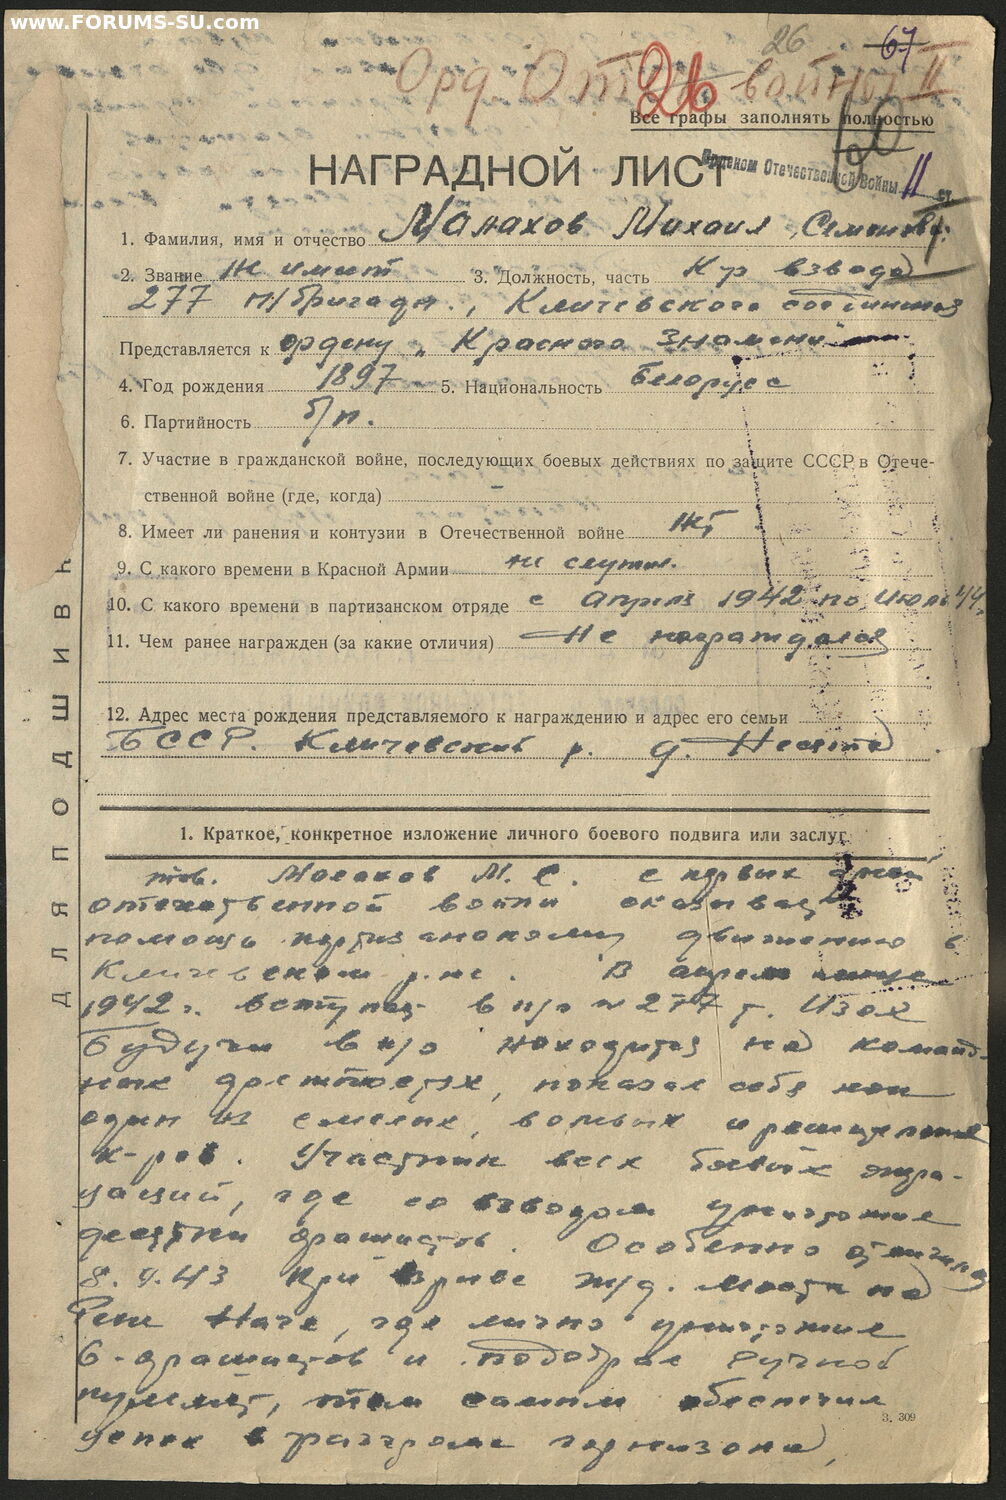 www.FORUMS-SU.com
26 67
Орд. От. войны II
26
Все графы заполнять полностью
60
НАГРАДНОЙ ЛИСТ
Орденом Отечественной Войны II ст.
1. Фамилия, имя и отчество Малахов Михаил Семенов.
2. Звание Не имеет 3. Должность, часть К-р взвода
277 п/бригады, Кличевского соединения
Представляется к ордену „Красного Знамени"
4. Год рождения 1897 5. Национальность Белорусс
6. Партийность б/п.
7. Участие в гражданской войне, последующих боевых действиях по защите СССР в Отече-
ственной войне (где, когда) –
8. Имеет ли ранения и контузии в Отечественной войне Нет
9. С какого времени в Красной Армии не служил.
10. С какого времени в партизанском отряде с апреля 1942 по июль 44
11. Чем ранее награжден (за какие отличия) Не награждался
12. Адрес места рождения представляемого к награждению и адрес его семьи
БССР. Кличевский р. д. Несята
ДЛЯ ПОДШИВК
1. Краткое, конкретное изложение личного боевого подвига или заслуг
тов. Малахов М. С. с первых дней
отечественной войны оказывал
помощь партизанскому движению в
Кличевском р-не. В апреле
1942 г. вступил в п/о № 277 г. Изох
Будучи в п/о находился на команд-
ных должностях, показал себя как
один из смелых, волевых и решительных
к-ров. Участник всех боевых опера-
ций, где со взводом уничтожил
десятки фашистов. Особенно отличился
8.4.43 при взрыве ж/д. моста на
Реке Наче, где лично уничтожил
6-фашистов и подобрал ручной
пулемет, тем самым обеспечил
успех в разгроме гарнизона,
З. 309